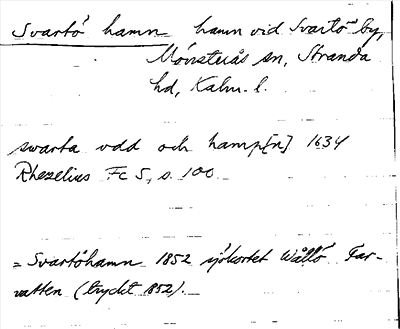 Svartö hamn hamn vid Svartö by,
Mönsterås sn, Stranda
hd, Kalm. l.
swarta udd och hamp[n] 1634
Rhezelius Fc 5, s. 100
= Svartöhamn 1852 sjökortet Wållö Far-
vatten (tryckt 1852).